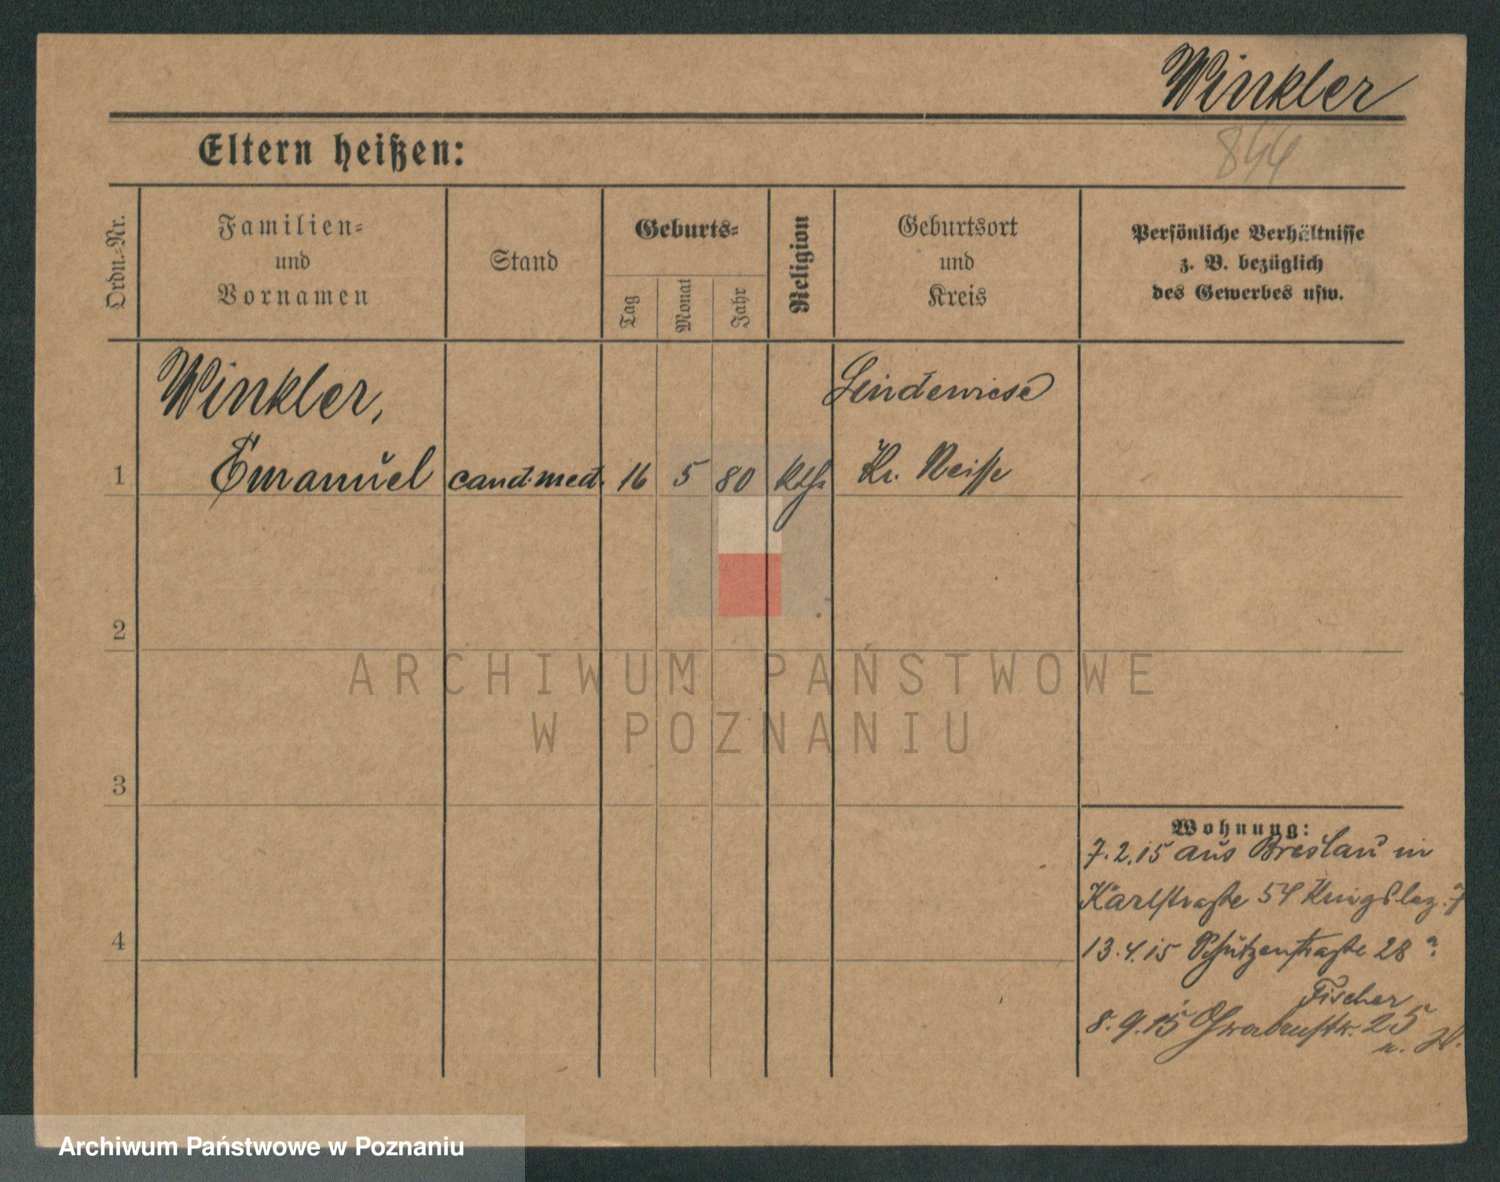 Winkler
844
Eltern heißen:
Ordn.-Nr.
Familien-
und
Vornamen
Stand
Geburts-
Tag
Monat
Jahr
Religion
Geburtsort
und
Kreis
Persönliche Verhältnisse
z. B. bezüglich
des Gewerbes usw.
1
Winkler,
Emanuel
cand. med.
16
5
80
kth.
Lindewiese
Kr. Neisse
2
3
4
Wohnung:
7.2.15 aus Breslau in
Karlstraße 54
13.4.15 Schützenstraße 28
Fischer
8.9.15 Grabenstr. 25
ARCHIWUM PAŃSTWOWE
W POZNANIU
Archiwum Państwowe w Poznaniu